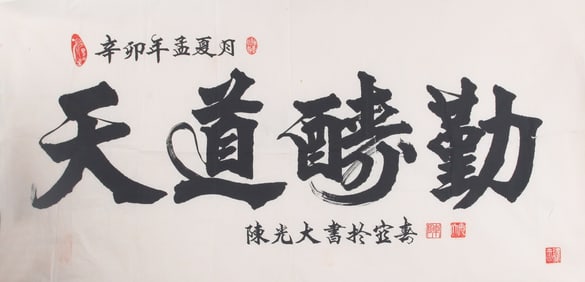 辛卯年孟夏月
天道醻勤
陳光大書於宜春